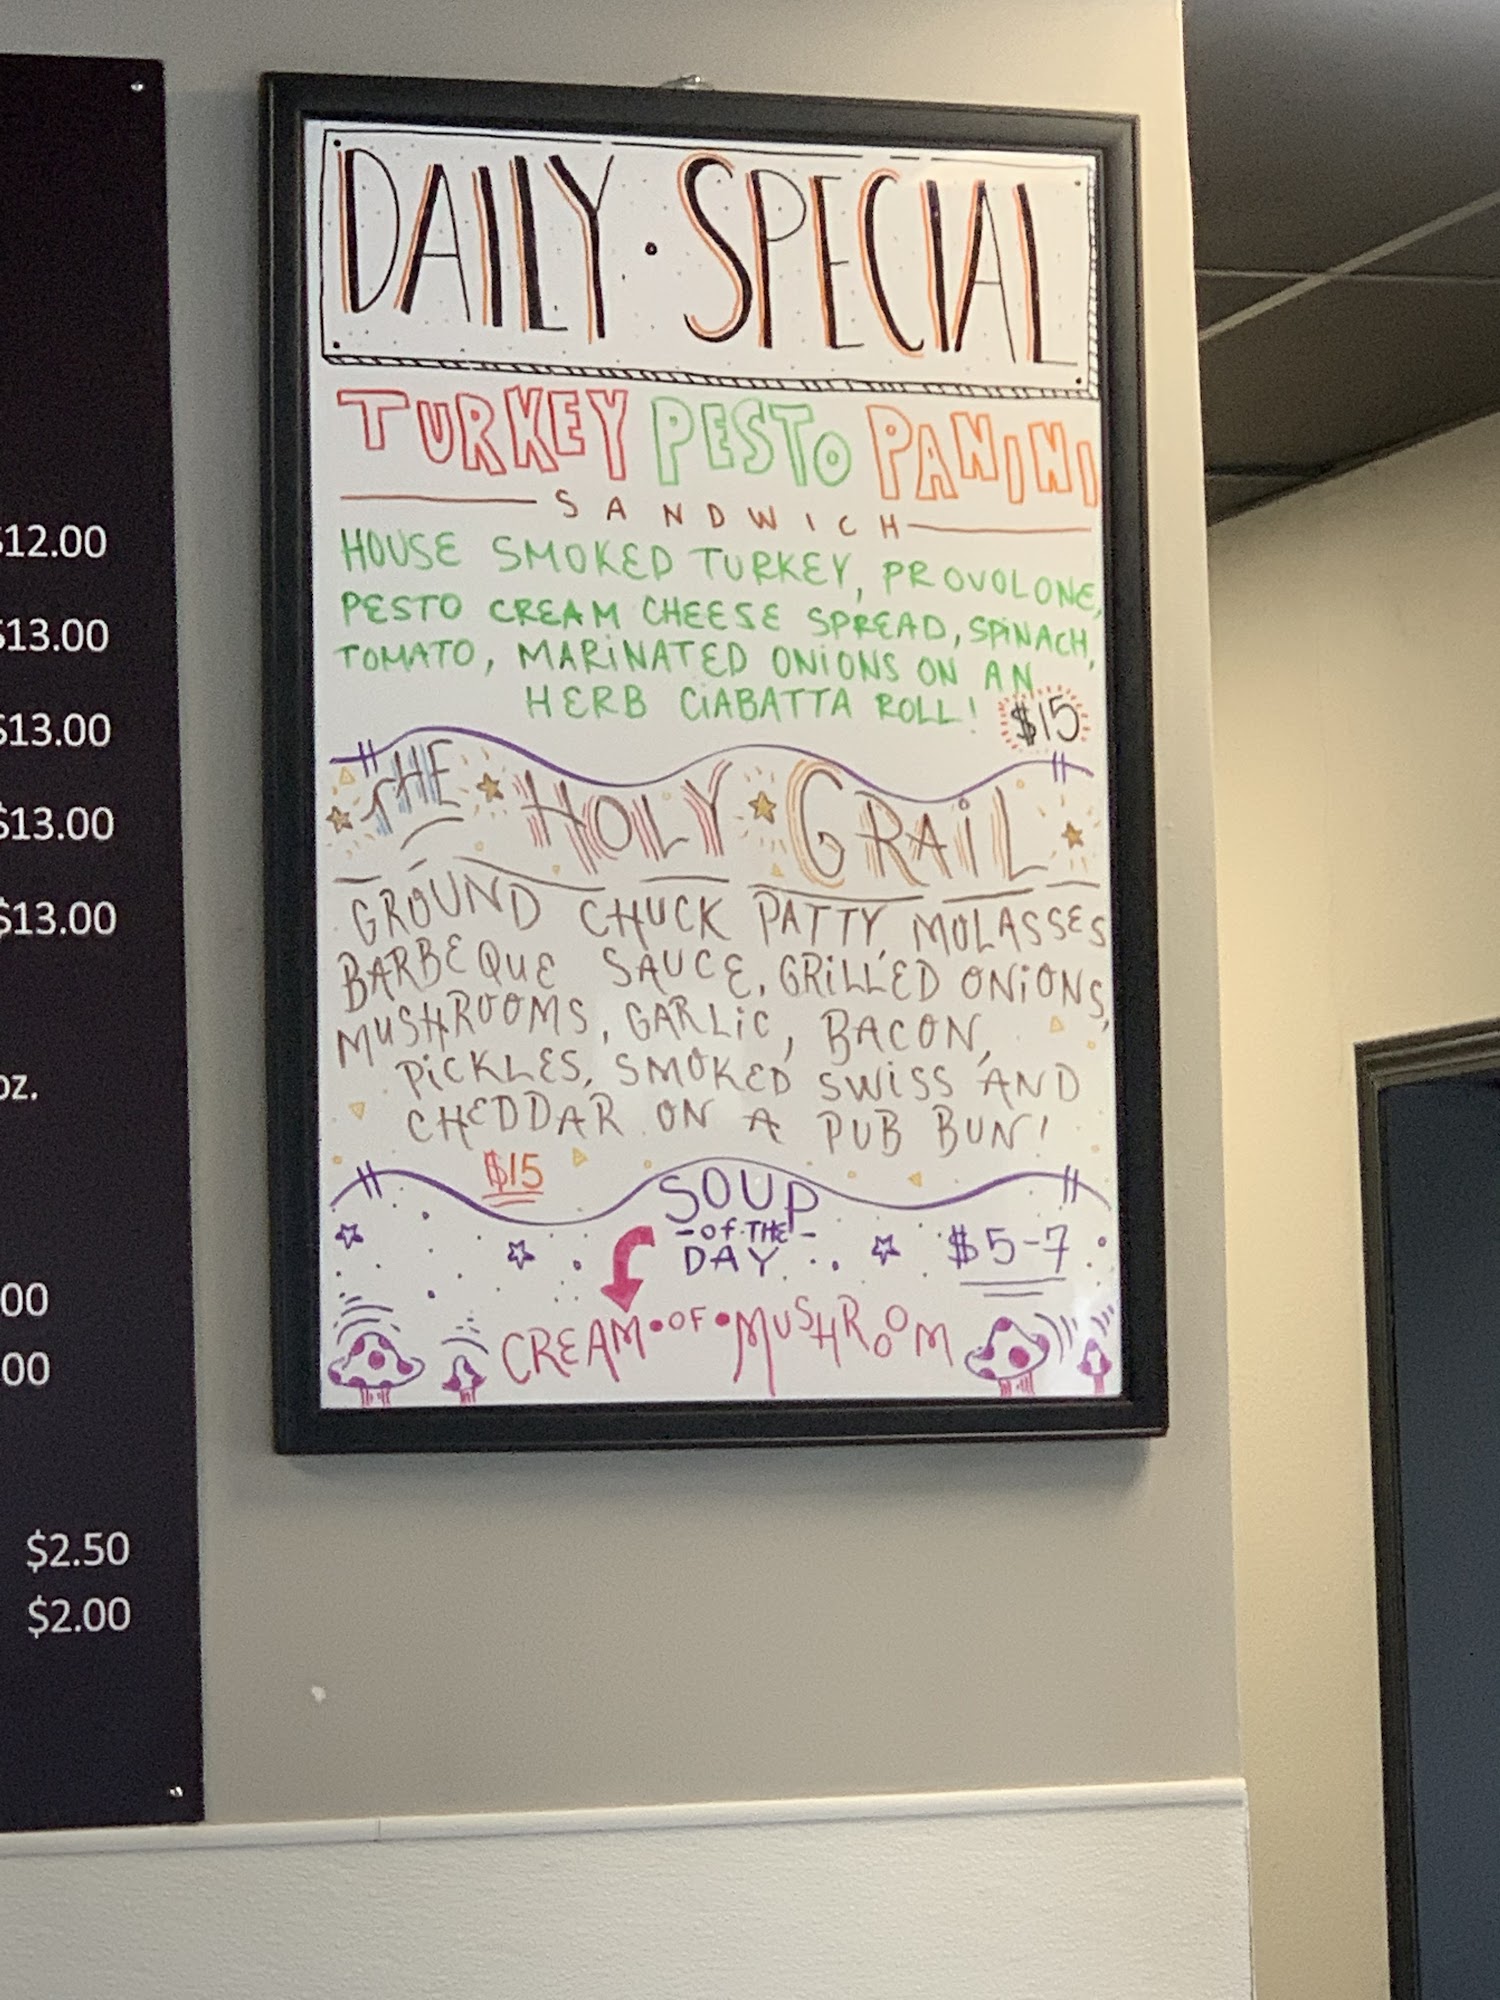 $12.00
$13.00
$13.00
$13.00
$13.00
oz.
00
00
$2.50
$2.00
DAILY · SPECIAL
TURKEY PESTO PANINI
SANDWICH
HOUSE SMOKED TURKEY, PROVOLONE,
PESTO CREAM CHEESE SPREAD, SPINACH,
TOMATO, MARINATED ONIONS ON AN
HERB CIABATTA ROLL!
$15
THE HOLY GRAIL
GROUND CHUCK PATTY, MOLASSES
BARBEQUE SAUCE, GRILLED ONIONS,
MUSHROOMS, GARLIC, BACON,
PICKLES, SMOKED SWISS AND
CHEDDAR ON A PUB BUN!
$15
SOUP
-OF THE-
DAY
$5-7
CREAM•OF•MUSHROOM